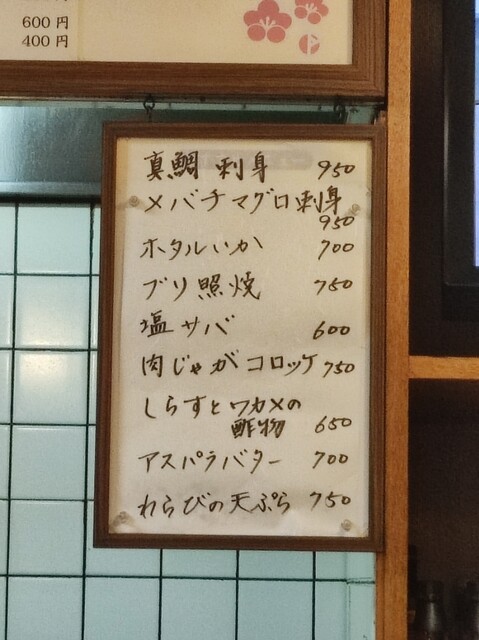 600 円
400 円
真鯛 刺身 950
メバチマグロ刺身
950
ホタルいか 700
ブリ照焼 750
塩サバ 600
肉じゃがコロッケ 750
しらすとワカメの
酢物 650
アスパラバター 700
わらびの天ぷら 750